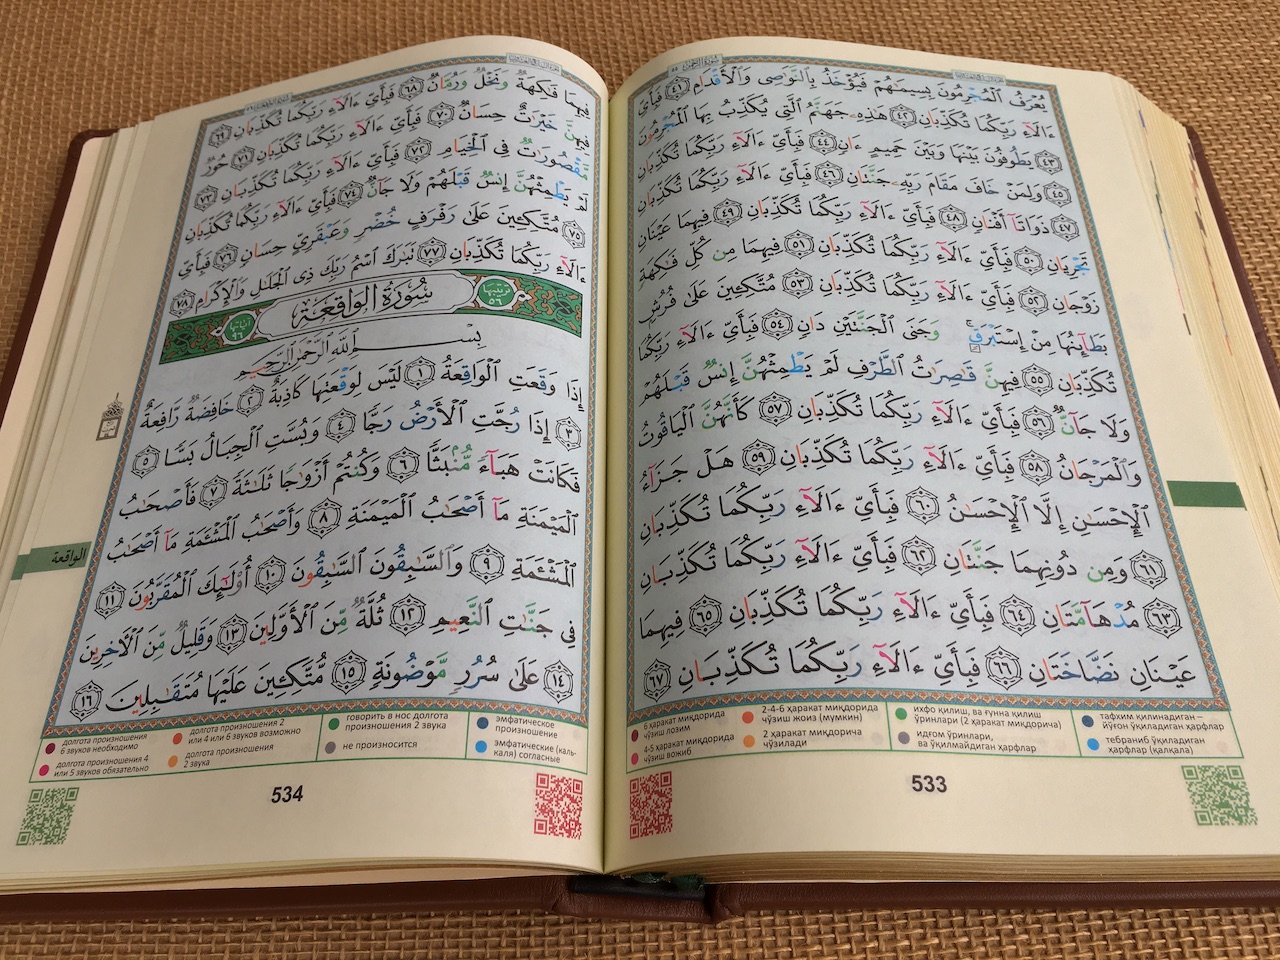 سُورَةُ الرَّحْمَٰن ٥٥
يُعْرَفُ ٱلْمُجْرِمُونَ بِسِيمَٰهُمْ فَيُؤْخَذُ بِٱلنَّوَٰصِى وَٱلْأَقْدَامِ ٤١ فَبِأَىِّ
ءَالَآءِ رَبِّكُمَا تُكَذِّبَانِ ٤٢ هَٰذِهِۦ جَهَنَّمُ ٱلَّتِى يُكَذِّبُ بِهَا ٱلْمُجْرِمُونَ
٤٣ يَطُوفُونَ بَيْنَهَا وَبَيْنَ حَمِيمٍ ءَانٍ ٤٤ فَبِأَىِّ ءَالَآءِ رَبِّكُمَا تُكَذِّبَانِ
٤٥ وَلِمَنْ خَافَ مَقَامَ رَبِّهِۦ جَنَّتَانِ ٤٦ فَبِأَىِّ ءَالَآءِ رَبِّكُمَا تُكَذِّبَانِ
٤٧ ذَوَاتَآ أَفْنَانٍ ٤٨ فَبِأَىِّ ءَالَآءِ رَبِّكُمَا تُكَذِّبَانِ ٤٩ فِيهِمَا عَيْنَانِ
تَجْرِيَانِ ٥٠ فَبِأَىِّ ءَالَآءِ رَبِّكُمَا تُكَذِّبَانِ ٥١ فِيهِمَا مِن كُلِّ فَٰكِهَةٍ
زَوْجَانِ ٥٢ فَبِأَىِّ ءَالَآءِ رَبِّكُمَا تُكَذِّبَانِ ٥٣ مُتَّكِـِٔينَ عَلَىٰ فُرُشٍۭ
بَطَآئِنُهَا مِنْ إِسْتَبْرَقٍ ۚ وَجَنَى ٱلْجَنَّتَيْنِ دَانٍ ٥٤ فَبِأَىِّ ءَالَآءِ رَبِّكُمَا
تُكَذِّبَانِ ٥٥ فِيهِنَّ قَٰصِرَٰتُ ٱلطَّرْفِ لَمْ يَطْمِثْهُنَّ إِنسٌ قَبْلَهُمْ
وَلَا جَآنٌّ ٥٦ فَبِأَىِّ ءَالَآءِ رَبِّكُمَا تُكَذِّبَانِ ٥٧ كَأَنَّهُنَّ ٱلْيَاقُوتُ
وَٱلْمَرْجَانُ ٥٨ فَبِأَىِّ ءَالَآءِ رَبِّكُمَا تُكَذِّبَانِ ٥٩ هَلْ جَزَآءُ
ٱلْإِحْسَٰنِ إِلَّا ٱلْإِحْسَٰنُ ٦٠ فَبِأَىِّ ءَالَآءِ رَبِّكُمَا تُكَذِّبَانِ
٦١ وَمِن دُونِهِمَا جَنَّتَانِ ٦٢ فَبِأَىِّ ءَالَآءِ رَبِّكُمَا تُكَذِّبَانِ
٦٣ مُدْهَآمَّتَانِ ٦٤ فَبِأَىِّ ءَالَآءِ رَبِّكُمَا تُكَذِّبَانِ ٦٥ فِيهِمَا
عَيْنَانِ نَضَّاخَتَانِ ٦٦ فَبِأَىِّ ءَالَآءِ رَبِّكُمَا تُكَذِّبَانِ ٦٧
6 ҳаракат миқдорида
чўзиш лозим
4-5 ҳаракат миқдорида
чўзиш вожиб
2-4-6 ҳаракат миқдорида
чўзиш жоиз (мумкин)
2 ҳаракат миқдорича
чўзилади
ихфо қилиш, ва ғунна қилиш
ўринлари (2 ҳаракат миқдорича)
идғом ўринлари,
ва ўқилмайдиган ҳарфлар
тафхим қилинадиган –
йўғон ўқиладиган ҳарфлар
тебраниб ўқиладиган
ҳарфлар (қалқала)
533
فِيهِمَا فَٰكِهَةٌ وَنَخْلٌ وَرُمَّانٌ ٦٨ فَبِأَىِّ ءَالَآءِ رَبِّكُمَا تُكَذِّبَانِ ٦٩
فِيهِنَّ خَيْرَٰتٌ حِسَانٌ ٧٠ فَبِأَىِّ ءَالَآءِ رَبِّكُمَا تُكَذِّبَانِ ٧١ حُورٌ
مَّقْصُورَٰتٌ فِى ٱلْخِيَامِ ٧٢ فَبِأَىِّ ءَالَآءِ رَبِّكُمَا تُكَذِّبَانِ ٧٣
لَمْ يَطْمِثْهُنَّ إِنسٌ قَبْلَهُمْ وَلَا جَآنٌّ ٧٤ فَبِأَىِّ ءَالَآءِ رَبِّكُمَا تُكَذِّبَانِ
٧٥ مُتَّكِـِٔينَ عَلَىٰ رَفْرَفٍ خُضْرٍ وَعَبْقَرِىٍّ حِسَانٍ ٧٦ فَبِأَىِّ
ءَالَآءِ رَبِّكُمَا تُكَذِّبَانِ ٧٧ تَبَٰرَكَ ٱسْمُ رَبِّكَ ذِى ٱلْجَلَٰلِ وَٱلْإِكْرَامِ ٧٨
ترتيبها ٥٦ سُورَةُ الوَاقِعَةِ آياتها ٩٦
بِسْمِ ٱللَّهِ ٱلرَّحْمَٰنِ ٱلرَّحِيمِ
إِذَا وَقَعَتِ ٱلْوَاقِعَةُ ١ لَيْسَ لِوَقْعَتِهَا كَاذِبَةٌ ٢ خَافِضَةٌ رَّافِعَةٌ
٣ إِذَا رُجَّتِ ٱلْأَرْضُ رَجًّا ٤ وَبُسَّتِ ٱلْجِبَالُ بَسًّا ٥
فَكَانَتْ هَبَآءً مُّنۢبَثًّا ٦ وَكُنتُمْ أَزْوَٰجًا ثَلَٰثَةً ٧ فَأَصْحَٰبُ
ٱلْمَيْمَنَةِ مَآ أَصْحَٰبُ ٱلْمَيْمَنَةِ ٨ وَأَصْحَٰبُ ٱلْمَشْـَٔمَةِ مَآ أَصْحَٰبُ
ٱلْمَشْـَٔمَةِ ٩ وَٱلسَّٰبِقُونَ ٱلسَّٰبِقُونَ ١٠ أُو۟لَٰٓئِكَ ٱلْمُقَرَّبُونَ ١١
فِى جَنَّٰتِ ٱلنَّعِيمِ ١٢ ثُلَّةٌ مِّنَ ٱلْأَوَّلِينَ ١٣ وَقَلِيلٌ مِّنَ ٱلْـَٔاخِرِينَ
١٤ عَلَىٰ سُرُرٍ مَّوْضُونَةٍ ١٥ مُّتَّكِـِٔينَ عَلَيْهَا مُتَقَٰبِلِينَ ١٦
الواقعة
долгота произношения
6 звуков необходимо
долгота произношения 4
или 5 звуков обязательно
долгота произношения 2
или 4 или 6 звуков возможно
долгота произношения
2 звука
говорить в нос долгота
произношения 2 звука
не произносится
эмфатическое
произношение
эмфатические (каль-
каля) согласные
534